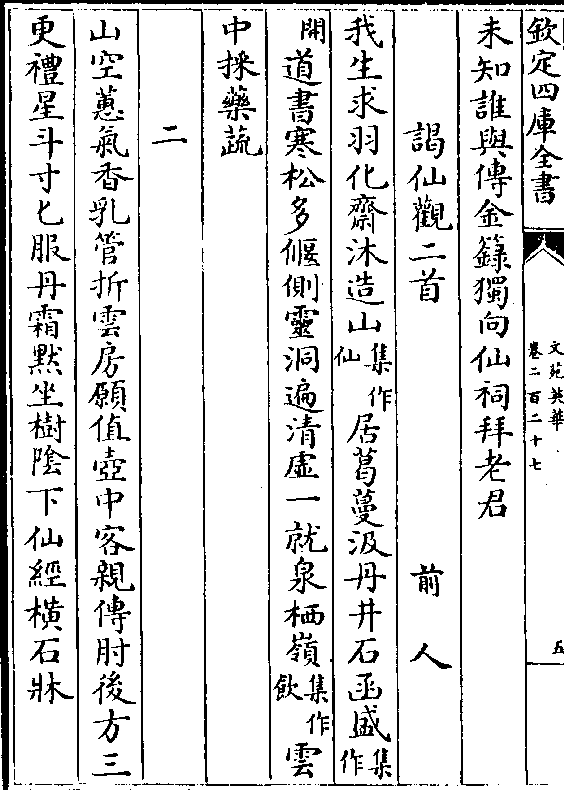 欽定四庫全書
文苑英華
卷二百二十七
五
未知誰與傳金籙獨向仙祠拜老君
謁仙觀二首 前人
我生求羽化齋沐造山集作仙居葛蔓汲丹井石函盛集作
開道書寒松多偃側靈洞遍清虛一就泉栖嶺集作飲雲
中採藥蔬
二
山空蕙氣香乳管折雲房願值壺中客親傳肘後方三
更禮星斗寸匕服丹霜默坐樹陰下仙經橫石牀